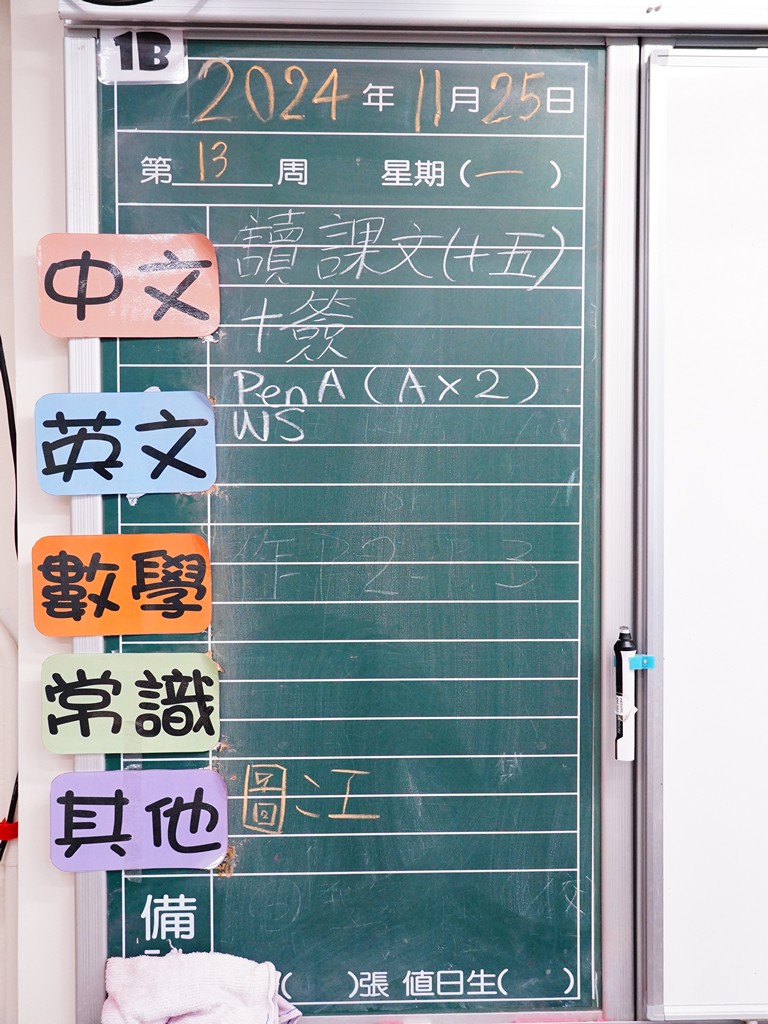 1B
2024年11月25日
第13周 星期(一)
中文
讀課文(十五)
+簽
英文
PenA(A×2)
WS
數學
P.2-P.3
常識
其他
圖、工
備
( )張 值日生( )